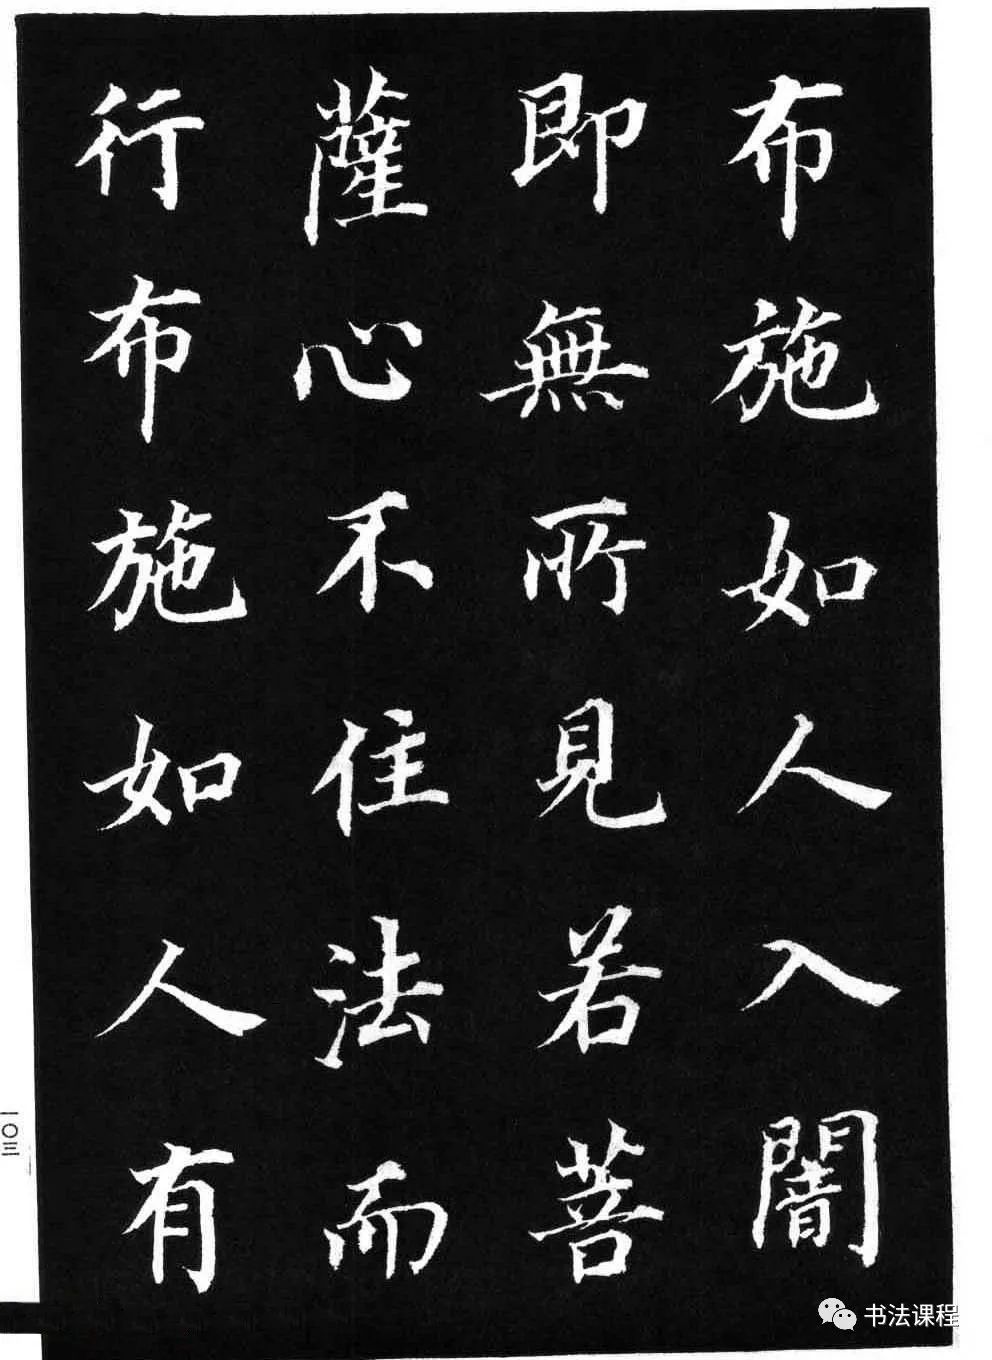 布施如人入闇
即無所見若菩
薩心不住法而
行布施如人有
一〇三
书法课程